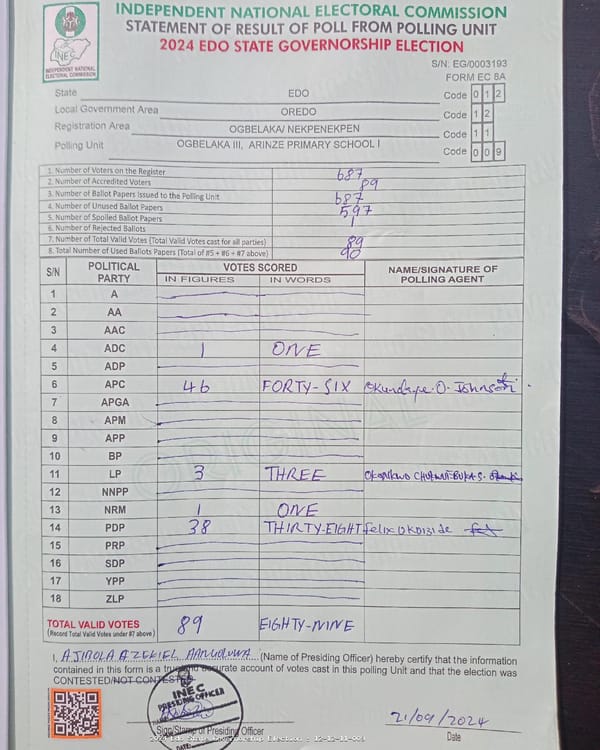 INDEPENDENT NATIONAL ELECTORAL COMMISSION
STATEMENT OF RESULT OF POLL FROM POLLING UNIT
2024 EDO STATE GOVERNORSHIP ELECTION
INEC
INDEPENDENT NATIONAL ELECTORAL COMMISSION
S/N: EG/0003193
FORM EC 8A
State EDO Code 0 1 2
Local Government Area OREDO Code 1 2
Registration Area OGBELAKA/ NEKPENEKPEN Code 1 1
Polling Unit OGBELAKA III, ARINZE PRIMARY SCHOOL I Code 0 0 9
1. Number of Voters on the Register 687
2. Number of Accredited Voters 89
3. Number of Ballot Papers Issued to the Polling Unit 687
4. Number of Unused Ballot Papers 597
5. Number of Spoiled Ballot Papers 1
6. Number of Rejected Ballots
7. Number of Total Valid Votes (Total Valid Votes cast for all parties) 89
8. Total Number of Used Ballots Papers (Total of #5 + #6 + #7 above) 90
S/N POLITICAL PARTY VOTES SCORED NAME/SIGNATURE OF POLLING AGENT
IN FIGURES IN WORDS
1 A
2 AA
3 AAC
4 ADC 1 ONE
5 ADP
6 APC 46 FORTY-SIX O. Johnson
7 APGA
8 APM
9 APP
10 BP
11 LP 3 THREE
12 NNPP
13 NRM 1 ONE
14 PDP 38 THIRTY-EIGHT Felix
15 PRP
16 SDP
17 YPP
18 ZLP
TOTAL VALID VOTES 89 EIGHTY-NINE
(Record Total Valid Votes under #7 above)
I, AJIBOLA EZEKIEL (Name of Presiding Officer) hereby certify that the information
contained in this form is a true and accurate account of votes cast in this polling Unit and that the election was
CONTESTED/NOT CONTESTED.
INEC
PRESIDING OFFICER
21/09/2024
Sign/Stamp of Presiding Officer Date
DATE: